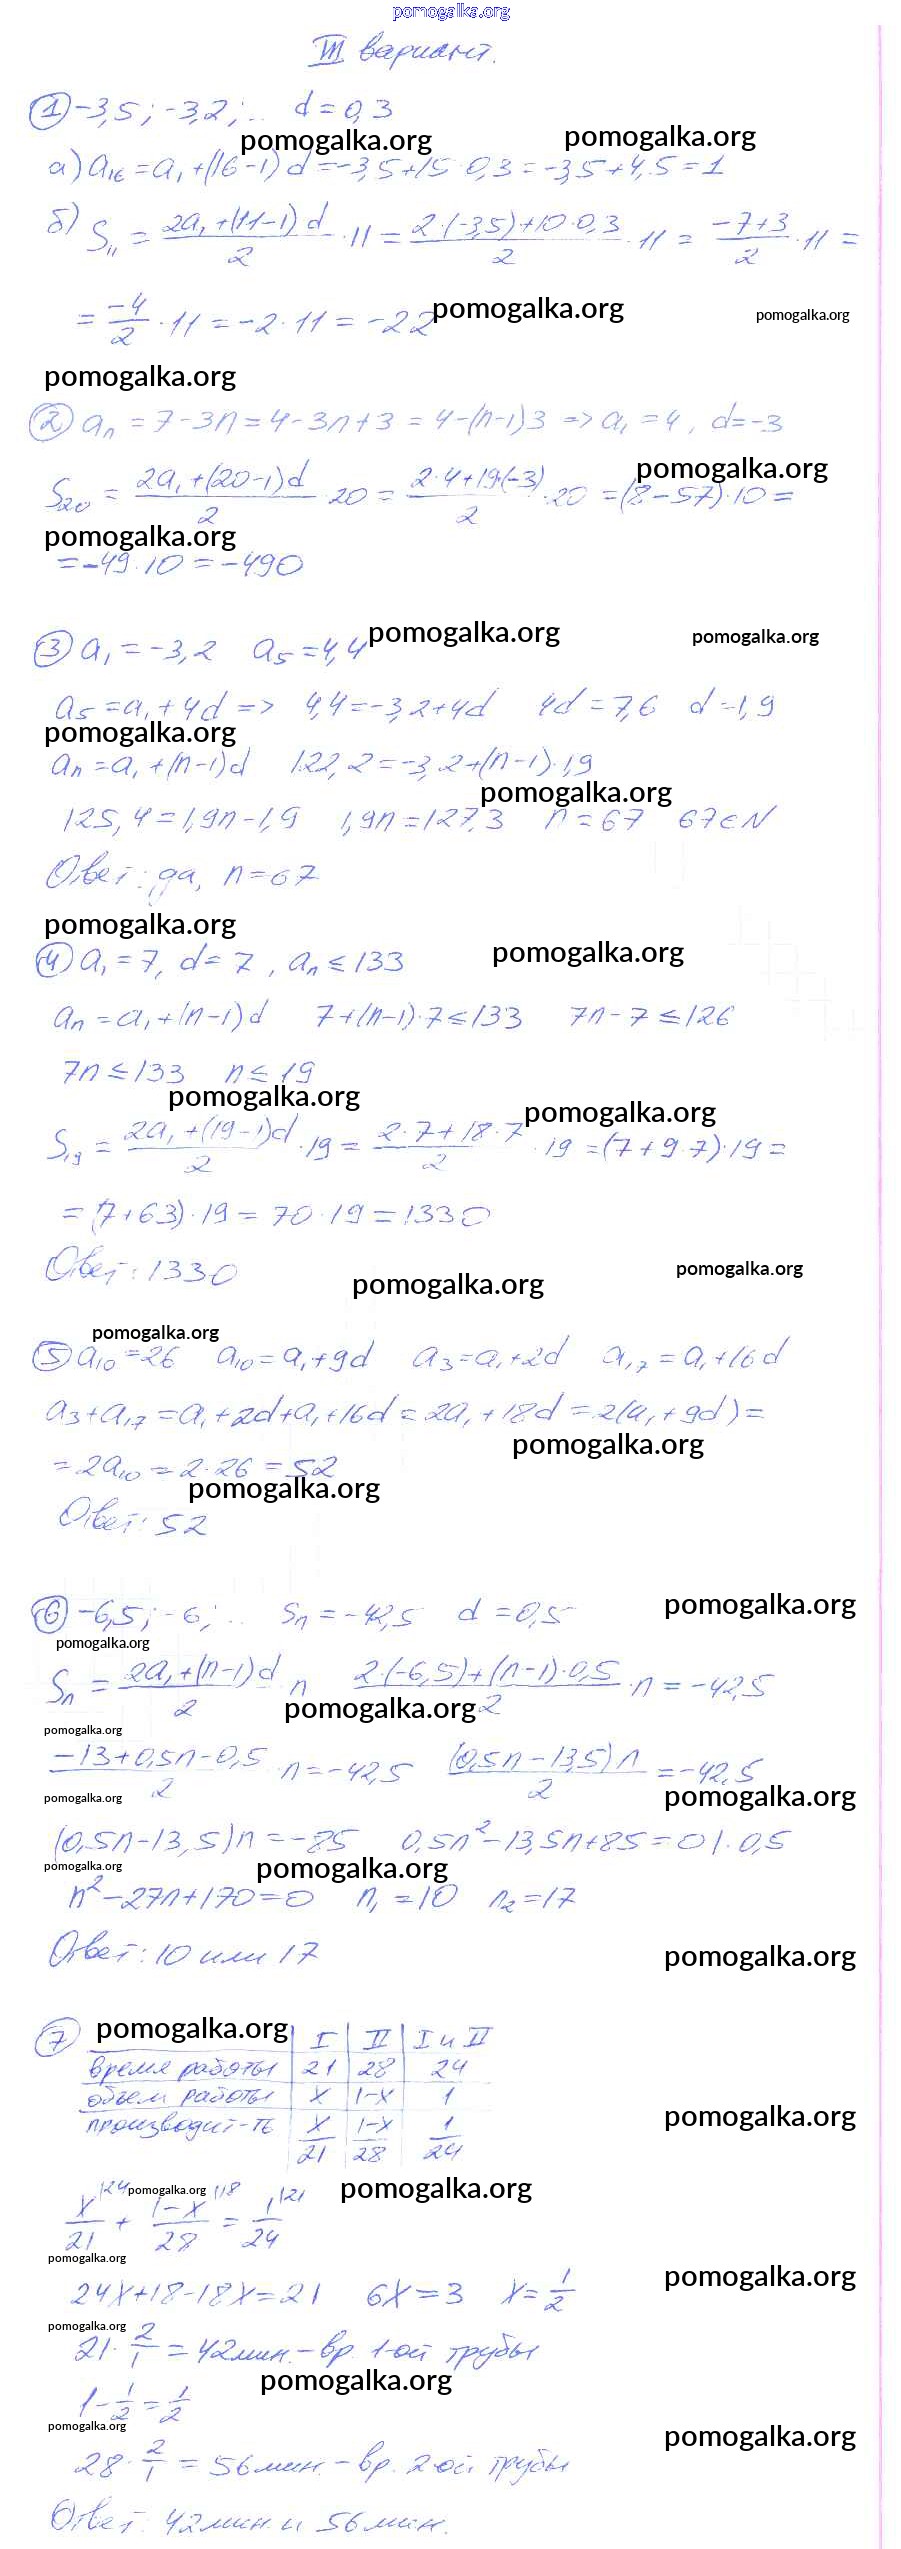 pomogalka.org
III вариант.
① -3,5; -3,2; .. d = 0,3
pomogalka.org pomogalka.org
а) a₁₆ = a₁ + (16-1) d = -3,5 + 15 · 0,3 = -3,5 + 4,5 = 1
б) S₁₁ = (2a₁ + (11-1) d)/2 · 11 = (2·(-3,5) + 10·0,3)/2 · 11 = (-7+3)/2 · 11 =
= -4/2 · 11 = -2 · 11 = -22
pomogalka.org pomogalka.org
pomogalka.org
② aₙ = 7 - 3n = 4 - 3n + 3 = 4 - (n-1)3 => a₁ = 4, d = -3
pomogalka.org
S₂₀ = (2a₁ + (20-1)d)/2 · 20 = (2·4 + 19·(-3))/2 · 20 = (8 - 57)·10 =
pomogalka.org
= -49 · 10 = -490
pomogalka.org pomogalka.org
③ a₁ = -3,2 a₅ = 4,4
a₅ = a₁ + 4d => 4,4 = -3,2 + 4d 4d = 7,6 d = 1,9
pomogalka.org
aₙ = a₁ + (n-1)d 122,2 = -3,2 + (n-1)·1,9
pomogalka.org
125,4 = 1,9n - 1,9 1,9n = 127,3 n = 67 67 ∈ N
Ответ: да, n = 67
pomogalka.org
pomogalka.org
④ a₁ = 7, d = 7, aₙ ≤ 133
aₙ = a₁ + (n-1) d 7 + (n-1)·7 ≤ 133 7n - 7 ≤ 126
7n ≤ 133 n ≤ 19
pomogalka.org pomogalka.org
S₁₉ = (2a₁ + (19-1)d)/2 · 19 = (2·7 + 18·7)/2 · 19 = (7 + 9·7)·19 =
= (7 + 63) · 19 = 70 · 19 = 1330
Ответ: 1330
pomogalka.org pomogalka.org
pomogalka.org
⑤ a₁₀ = 26 a₁₀ = a₁ + 9d a₃ = a₁ + 2d a₁₇ = a₁ + 16d
a₃ + a₁₇ = a₁ + 2d + a₁ + 16d = 2a₁ + 18d = 2(a₁ + 9d) =
pomogalka.org
= 2a₁₀ = 2 · 26 = 52
pomogalka.org
Ответ: 52
pomogalka.org
⑥ -6,5; -6; .. Sₙ = -42,5 d = 0,5
pomogalka.org
Sₙ = (2a₁ + (n-1)d)/2 n (2·(-6,5) + (n-1)·0,5)/2 · n = -42,5
pomogalka.org
pomogalka.org
(-13 + 0,5n - 0,5)/2 · n = -42,5 ((0,5n - 13,5) n)/2 = -42,5
pomogalka.org pomogalka.org
(0,5n - 13,5) n = -85 0,5n² - 13,5n + 85 = 0 | · 0,5
pomogalka.org pomogalka.org
n² - 27n + 170 = 0 n₁ = 10 n₂ = 17
Ответ: 10 или 17
pomogalka.org
⑦ pomogalka.org I II I и II
время работы 21 28 24
объем работы x 1-x 1
производит-ть x/21 (1-x)/28 1/24
pomogalka.org
pomogalka.org pomogalka.org
x/21 |24 + (1-x)/28 |18 = 1/24 |21
pomogalka.org pomogalka.org
24x + 18 - 18x = 21 6x = 3 x = 1/2
pomogalka.org
21 · 2/1 = 42 мин. - вр. 1-ой трубы
pomogalka.org
1 - 1/2 = 1/2
pomogalka.org pomogalka.org
28 · 2/1 = 56 мин. - вр. 2-ой трубы
Ответ: 42 мин. и 56 мин.